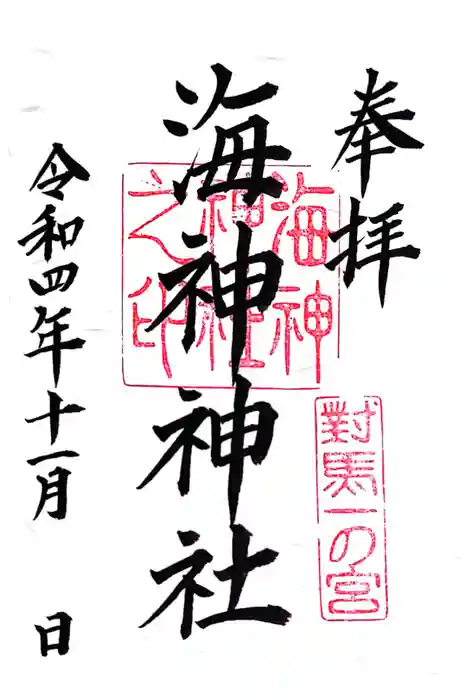 奉拝
對馬一の宮
海神神社
海神神社之印
令和四年十一月 日